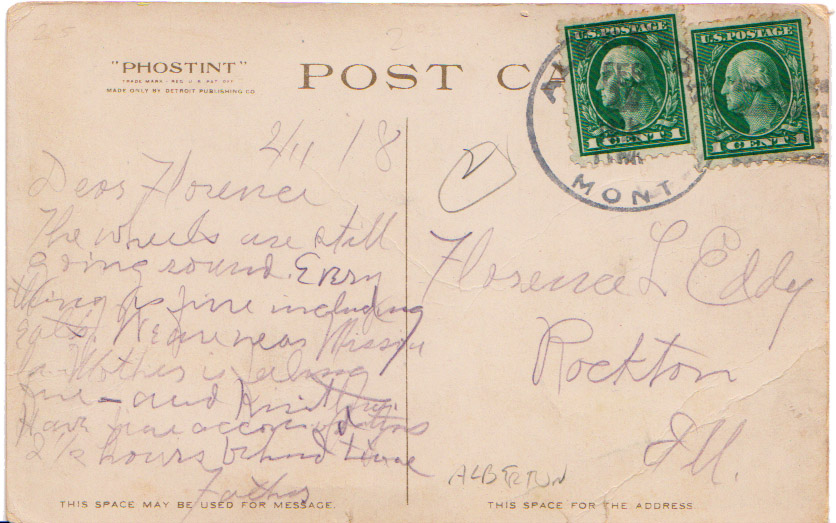 "PHOSTINT"
TRADE MARK - REG. U.S. PAT. OFF.
MADE ONLY BY DETROIT PUBLISHING CO.
POST CA
U.S. POSTAGE
1 CENT 1
U.S. POSTAGE
1 CENT 1
MONT
2/11/18
Dear Florence
The wheels are still
going round. Every
thing is fine including
Eats. We are near Missou
la Mother is feeling
fine - and knitting.
Have fine accomodations
2 1/2 hours behind time
Father
THIS SPACE MAY BE USED FOR MESSAGE.
2
Florence L Eddy
Rockton
Ill.
ALBERTON
THIS SPACE FOR THE ADDRESS.